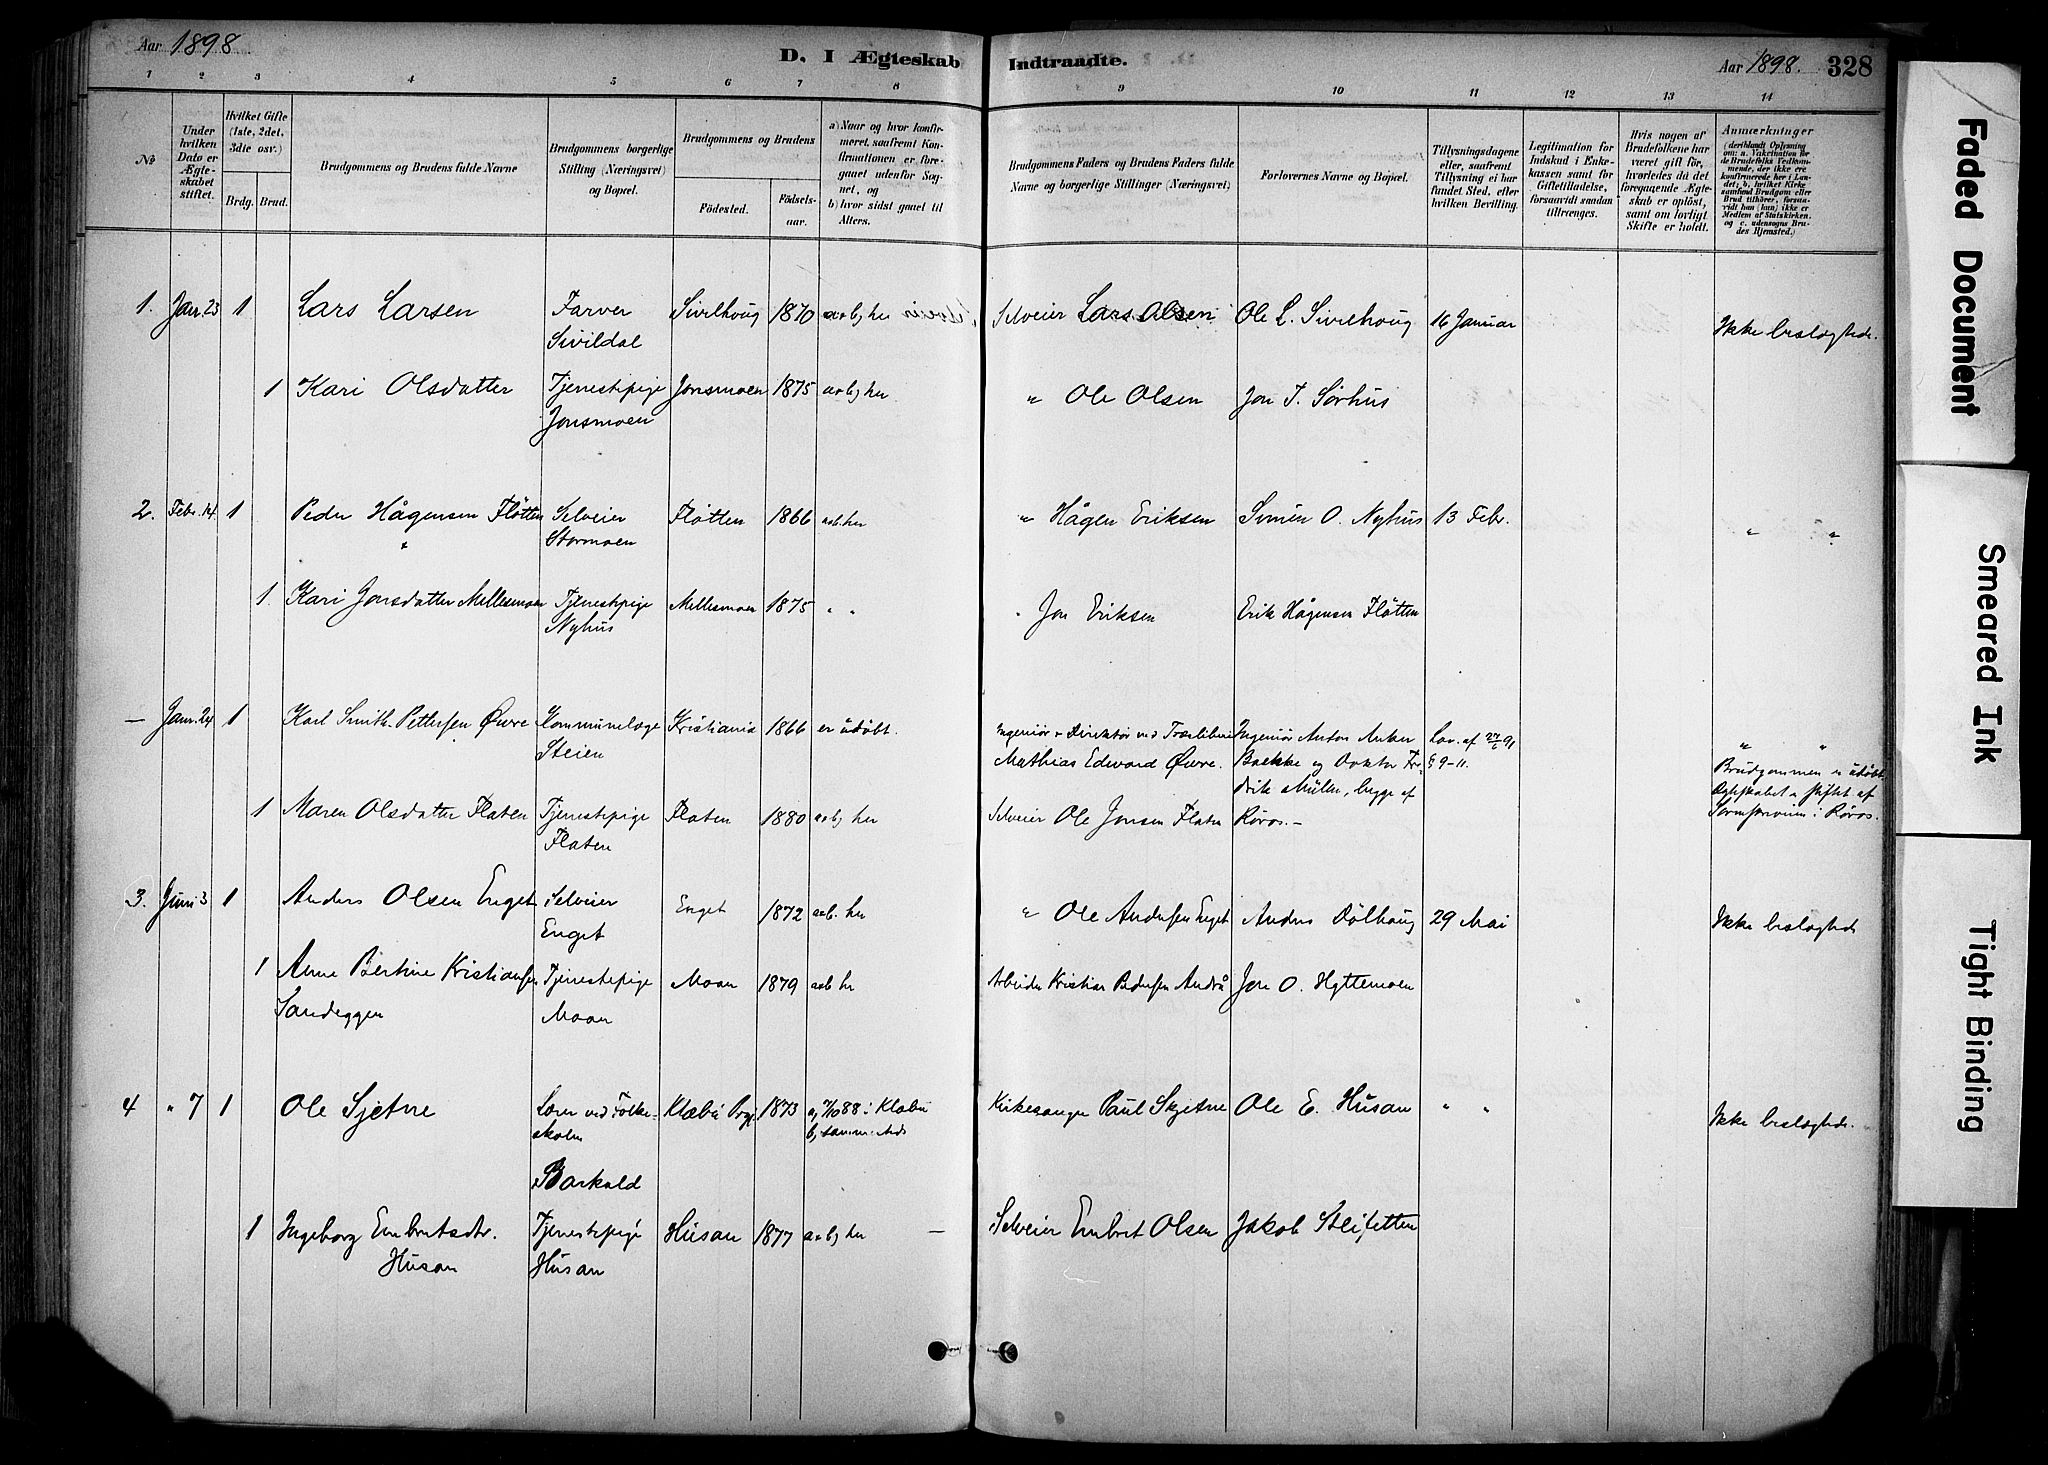 Aar 1898
D. I Ægteskab Indtraadte.
Aar 1898. 328
1 2 3 4 5 6 7 8 9 10 11 12 13 14
No
Under hvilken Dato er Ægteskabet stiftet.
Hvilket Gifte (1ste, 2det, 3die osv.)
Brdg. Brud.
Brudgommens og Brudens fulde Navne
Brudgommens borgerlige Stilling (Næringsvei) og Bopæl.
Brudgommens og Brudens
Födested.
Födselsaar.
a) Naar og hvor konfirmeret, saafremt Konfirmationen er foregaaet udenfor Sognet, og
b) hvor sidst gaaet til Alters.
Brudgommens Faders og Brudens Faders fulde Navne og borgerlige Stillinger (Næringsvei)
Forlovernes Navne og Bopæl.
Tillysningsdagene eller, saafremt Tillysning ei har fundet Sted, efter hvilken Bevilling.
Legitimation for Indskud i Enkekassen samt for Giftetilladelse, forsaavidt saadan tiltrænges.
Hvis nogen af Brudefolkene har været gift før, hvorledes da det foregaaende Ægteskab er oplöst, samt om lovligt Skifte er holdt.
Anmærkninger
1. Janr. 23 1 Lars Larsen Farver Sivilhoug 1870 a o b) her Selveier Lars Olsen Ole L. Sivilhoug 16 Januar Ikke beslægtede.
Sivildal
1 Kari Olsdatter Tjenestepige Jonsmoen 1875 a o b) her " Ole Olsen Jon T. Sørhus
Jonsmoen
2. Febr. 14 1 Peder Hågensen Fløtten Selveier Fløtten 1866 aob. her " Hågen Eriksen Simen O. Nyhus 13 Febr. " "
Stormoen
1. Kari Jonsdatter Mellesmoen Tjenestepige Mellesmoen 1875 " " " Jon Eriksen Erik Hågensen Fløtten
Nyhus
— Janr. 24 1 Karl Smith-Pettersen Øwre Kommunelæge Kristiania 1866 er udøbt. Ingeniør & Direktør ved Ingeniør Anton Anker Lov. af 27/6 91 " "
Steien Mathias Edward Øwre. Bakke og Doktor Fre- § 9-11. Brudgommen er udøbt.
1 Maren Olsdatter Flaten Tjenestepige Flaten 1880 a o b) her Selveier Ole Jonsen Flaten drik Müller, begge af Ægteskabet er stiftet af
Flaten Røros.— Sorenskriveren i Røros.
3. Juni 3 1 Anders Olsen Enget Selveier Enget 1872 aob. her " Ole Andersen Enget Anders Dølhoug 29 Mai Ikke beslægtede
Enget
1 Anne Bertine Kristiansen Tjenestepige Moan 1879 aob her Arbeider Kristian Pedersen Andrå Jon O. Hyttemoen
Sandeggen Moan
4 " 7 1 Ole Sjetne Lærer ved Folke- Klæbu Prgj. 1873 a) 7/10 88 i Klæbu Kirkesanger Paul Skjetne Ole E. Husan " " Ikke beslægtede.
skolen b) samme steds
Barkald
1 Ingeborg Embretsdtr. Tjenestepige Husan 1877 a o b) her — Selveier Embret Olsen Jakob Steifetten
Husan Husan
Faded Document
Smeared Ink
Tight Binding